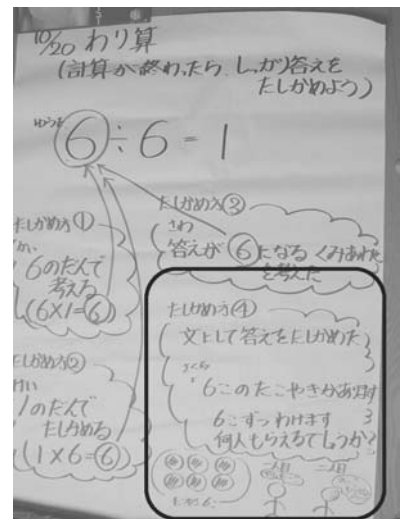 10/20 わり算
(計算が終わったら、しっかり答えを
たしかめよう)
6÷6=1
たしかめ方①
6のだんで
考える
(6×1=6)
たしかめ方②
1のだんで
たしかめる
(1×6=6)
たしかめ方③
さわ
答えが6になるくみあわせ
を考えた
たしかめ方④
文にして答えをたしかめた
6このたこやきがあります
6こずつわけます
何人もらえるでしょうか?
一人目
二人目